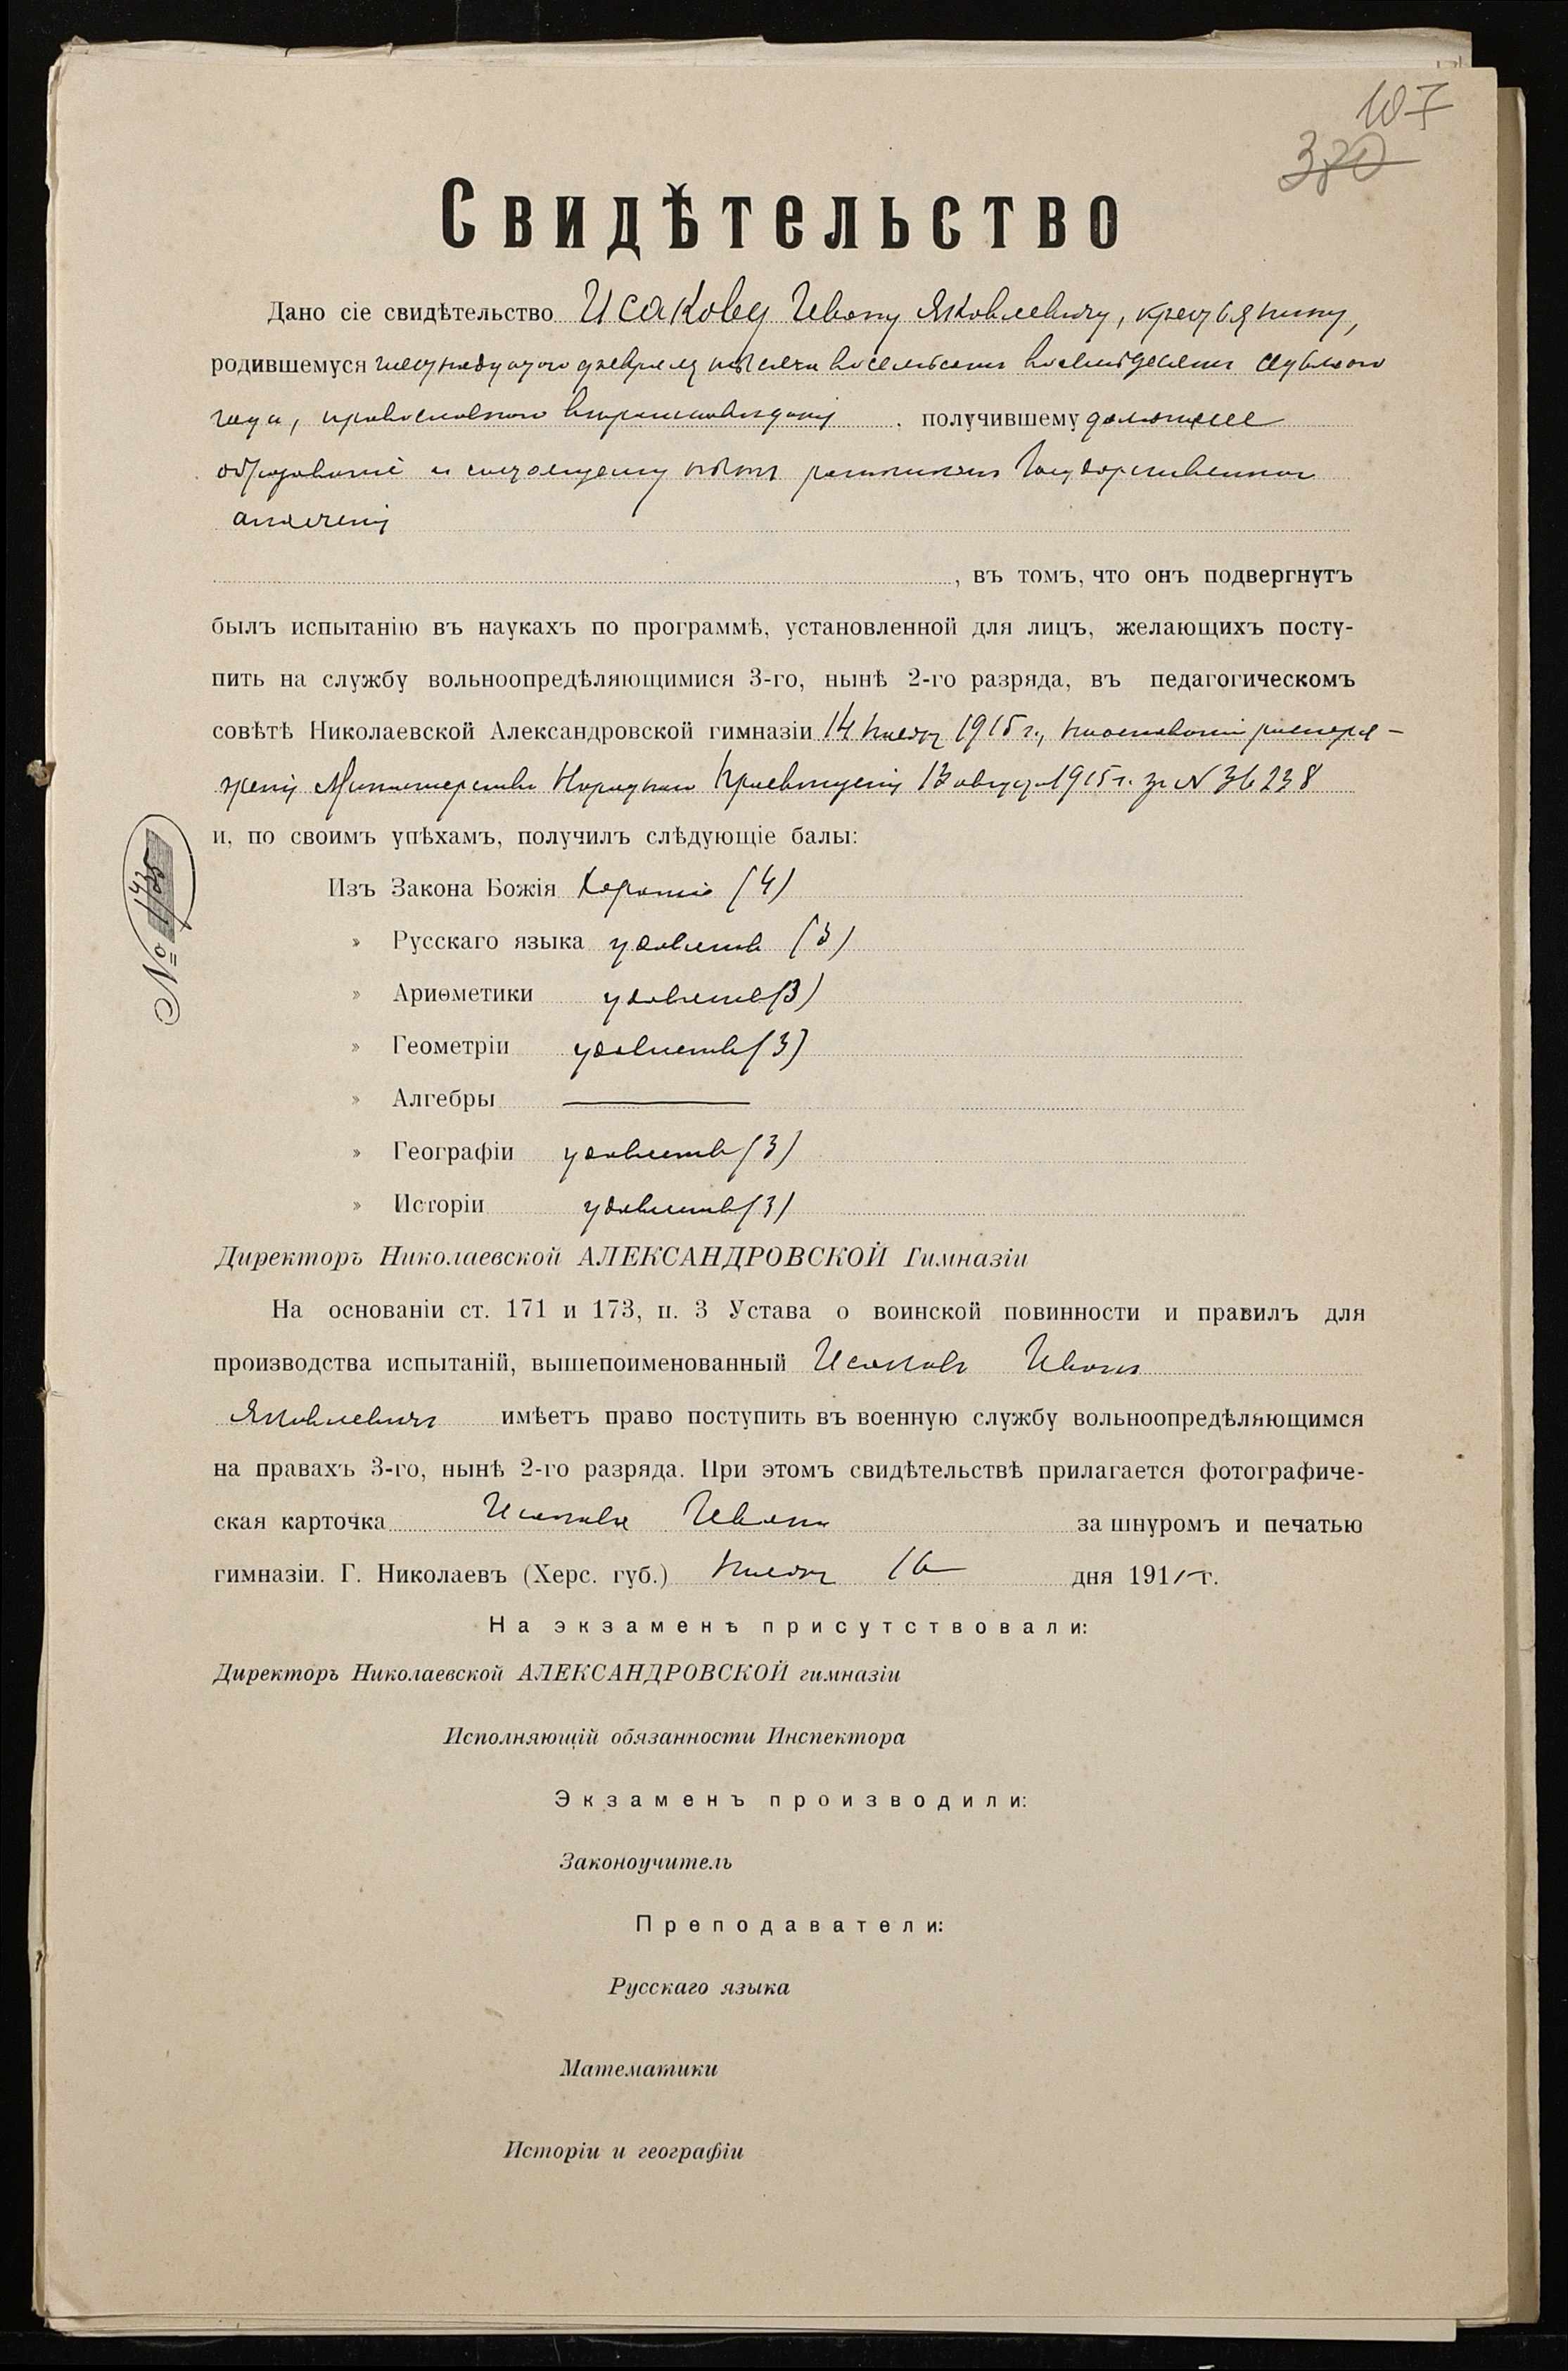 107
380
Свидѣтельство
Дано сіе свидѣтельство Исакову Ивану Яковлевичу, крестьянину,
родившемуся шестнадцатого февраля тысяча восемьсотъ восемьдесятъ седьмого
года, православнаго вѣроисповѣданія, получившему домашнее
образованіе и состоящему ратникомъ Государственнаго
ополченія
, въ томъ, что онъ подвергнутъ
былъ испытанію въ наукахъ по программѣ, установленной для лицъ, желающихъ посту-
пить на службу вольноопредѣляющимися 3-го, нынѣ 2-го разряда, въ педагогическомъ
совѣтѣ Николаевской Александровской гимназіи 14 1915 г., распоря-
женія Министерства Народнаго Просвѣщенія 13 августа 1915 г. за № 36238
и, по своимъ упѣхамъ, получилъ слѣдующіе балы:
№
Изъ Закона Божія Хорошо (4)
» Русскаго языка удовлетв (3)
» Ариѳметики удовлетв (3)
» Геометріи удовлетв (3)
» Алгебры —
» Географіи удовлетв (3)
» Исторіи удовлетв (3)
Директоръ Николаевской АЛЕКСАНДРОВСКОЙ Гимназіи
На основаніи ст. 171 и 173, п. 3 Устава о воинской повинности и правилъ для
производства испытаній, вышепоименованный Исаковъ Иванъ
Яковлевичъ имѣетъ право поступить въ военную службу вольноопредѣляющимся
на правахъ 3-го, нынѣ 2-го разряда. При этомъ свидѣтельствѣ прилагается фотографиче-
ская карточка Исакова Ивана за шнуромъ и печатью
гимназіи. Г. Николаевъ (Херс. губ.) 16 дня 1915 г.
На экзаменѣ присутствовали:
Директоръ Николаевской АЛЕКСАНДРОВСКОЙ гимназіи
Исполняющій обязанности Инспектора
Экзаменъ производили:
Законоучитель
Преподаватели:
Русскаго языка
Математики
Исторіи и географіи